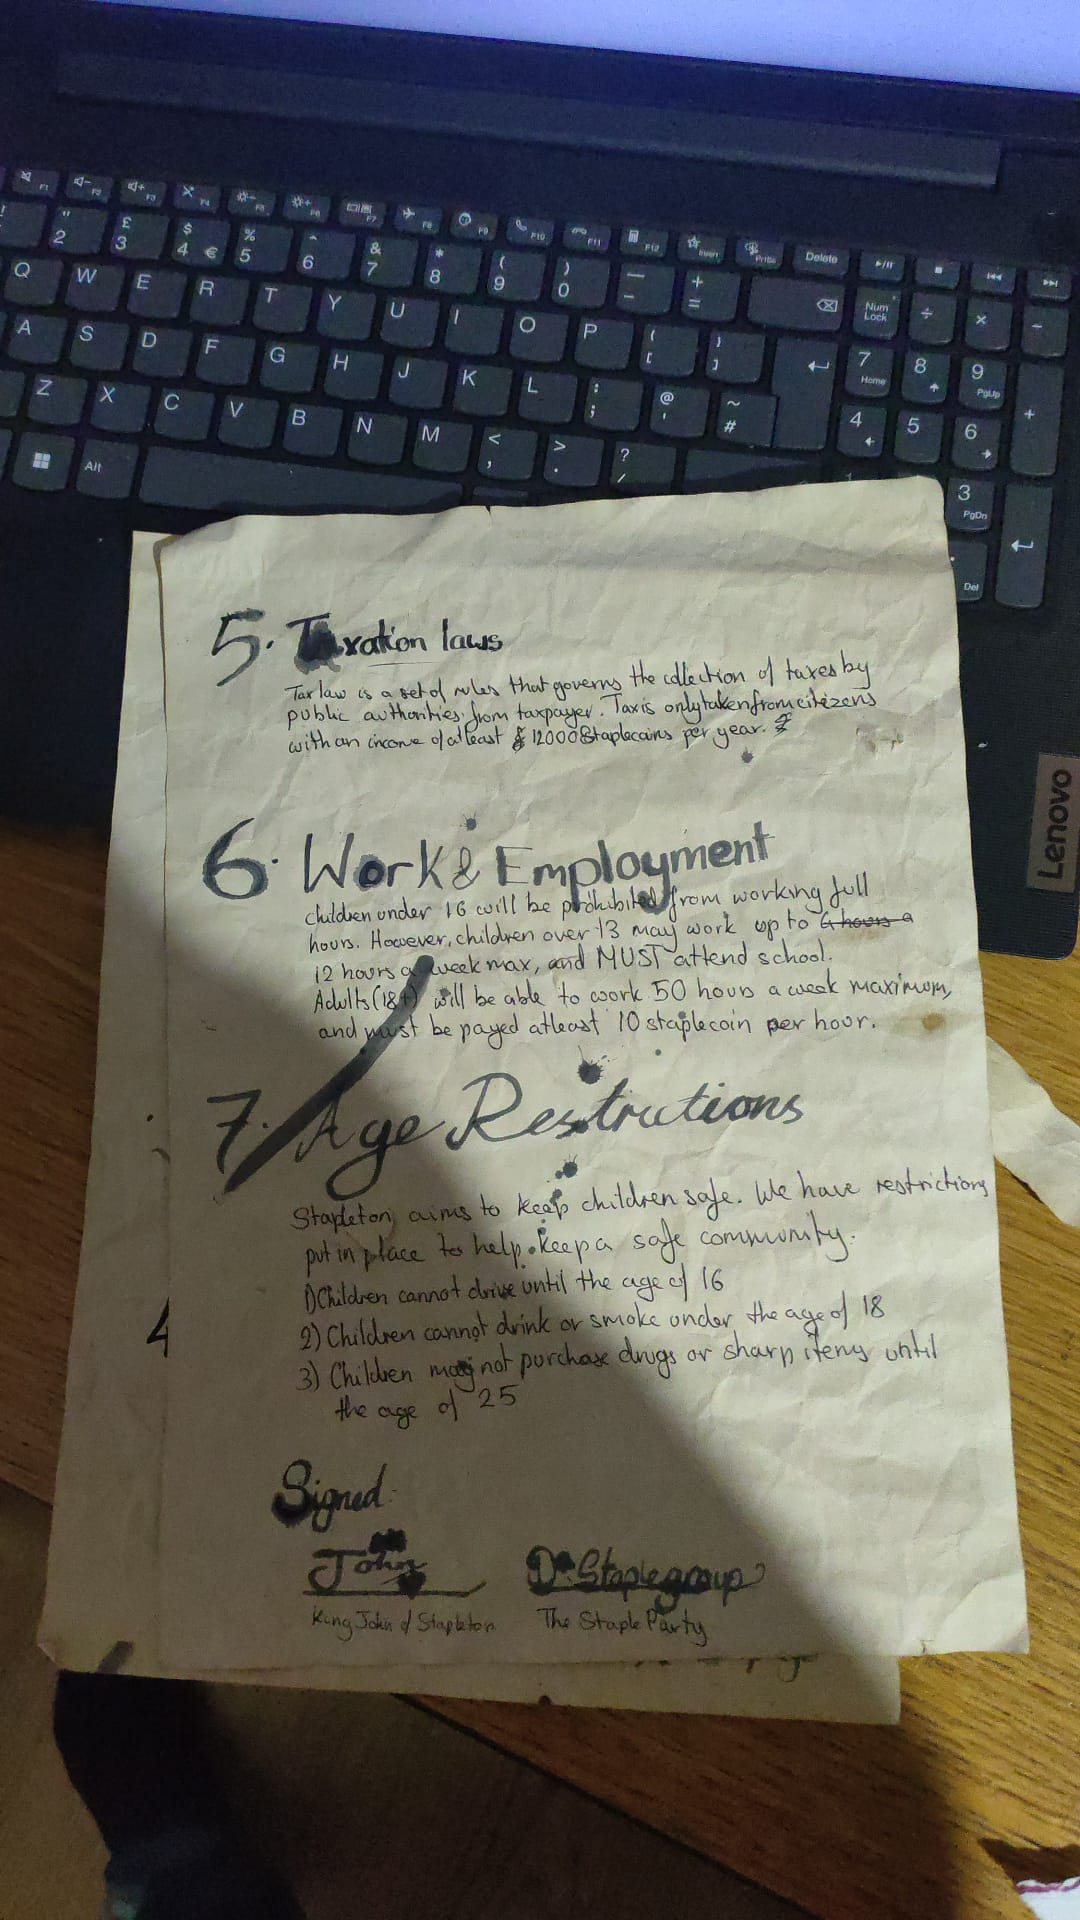 F1 F2 F3 F4 F5 F6 F7 F8 F9 F10 F11 F12 Insert PrtSc Delete
! " 2 £ 3 $ 4 € % 5 ^ 6 & 7 * 8 ( 9 ) 0 — - + =
Num Lock ÷ × −
Q W E R T Y U I O P { [ } ]
7 Home 8 9 PgUp +
A S D F G H J K L : ; @ ' ~ #
4 5 6
Z X C V B N M < , > . ? /
Alt
3 PgDn
. Del
Lenovo
5. Taxation laws
Tax law is a set of rules that governs the collection of taxes by
public authorities from taxpayer. Tax is only taken from citizens
with an income of atleast 12000 Staplecoins per year.
6. Work & Employment
children under 16 will be prohibited from working full
hours. However, children over 13 may work up to 4 hours a
12 hours a week max, and MUST attend school.
Adults (18+) will be able to work 50 hours a week maximum,
and must be payed atleast 10 staplecoin per hour.
7. Age Restrictions
Stapleton aims to keep children safe. We have restrictions
put in place to help keep a safe community.
1) Children cannot drive until the age of 16
2) Children cannot drink or smoke under the age of 18
3) Children may not purchase drugs or sharp items until
the age of 25
4
Signed:
John D. Staplegroup
King John of Stapleton The Staple Party